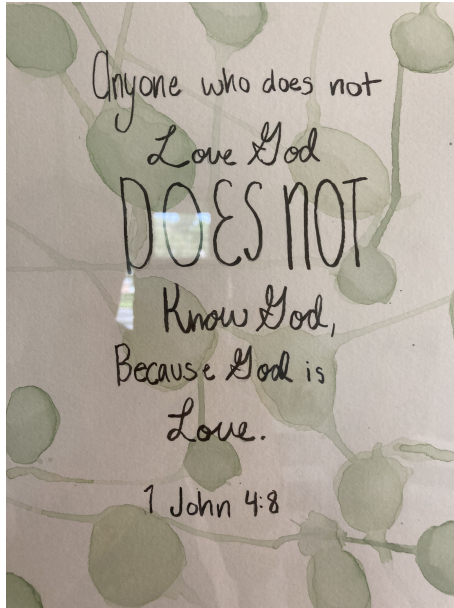 Anyone who does not
Love God
DOES NOT
Know God,
Because God is
Love.
1 John 4:8